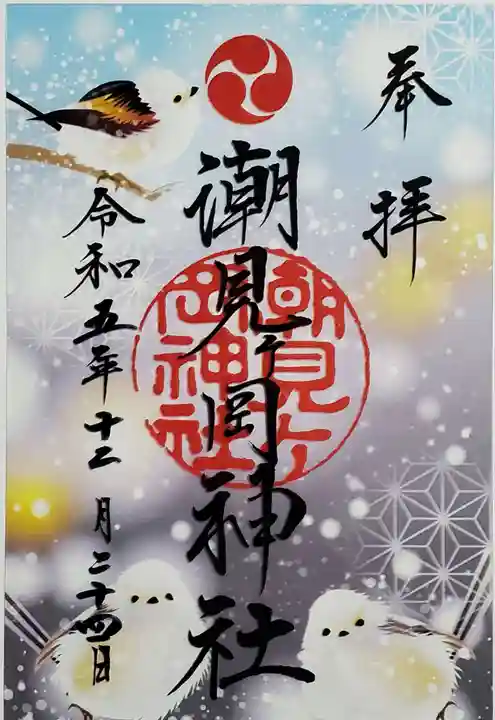 奉拝
潮見ケ岡神社
潮見ヶ岡神社
令和五年十二月二十四日